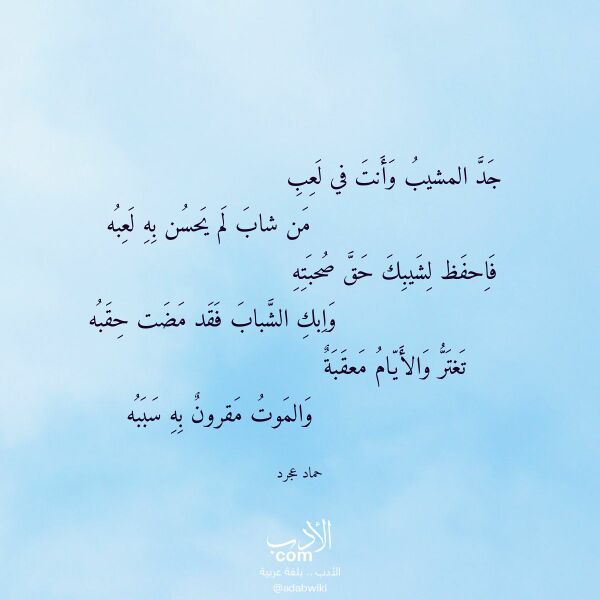 جَدَّ المشيبُ وَأَنتَ في لَعِبِ
مَن شابَ لَم يَحسُن بِهِ لَعِبُه
فَاِحفَظ لِشَيبِكَ حَقَّ صُحبَتِهِ
وَاِبكِ الشَّبابَ فَقَد مَضَت حِقَبُه
تَغتَرُّ وَالأَيّامُ مَعقَبَةٌ
وَالمَوتُ مَقرونٌ بِهِ سَبَبُه
حماد عجرد
الأدب
com
الأدب .. بلغة عربية
@adabwiki